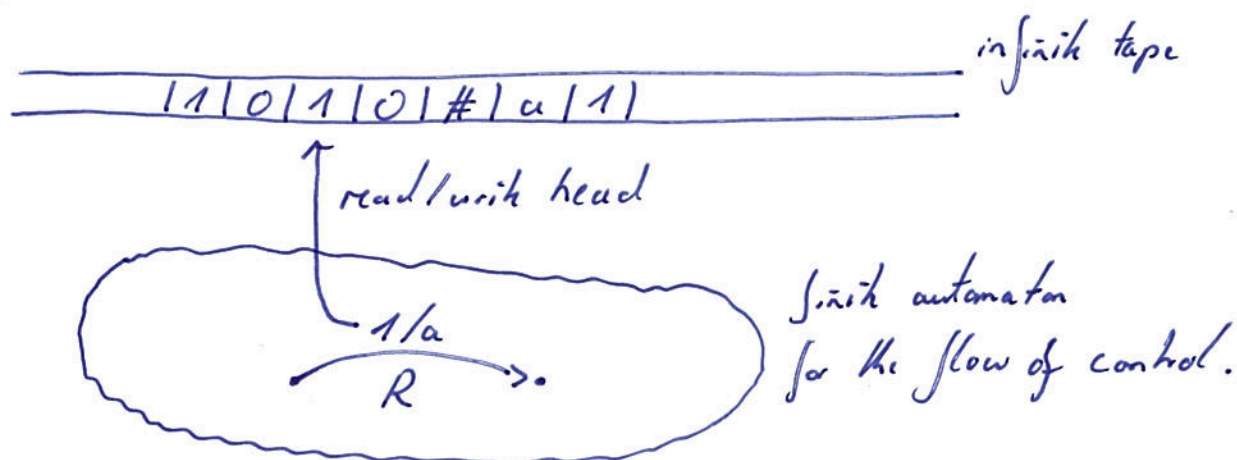 infinite tape
|1|0|1|0|#|a|1|
read/write head
1/a
R
finite automaton
for the flow of control.